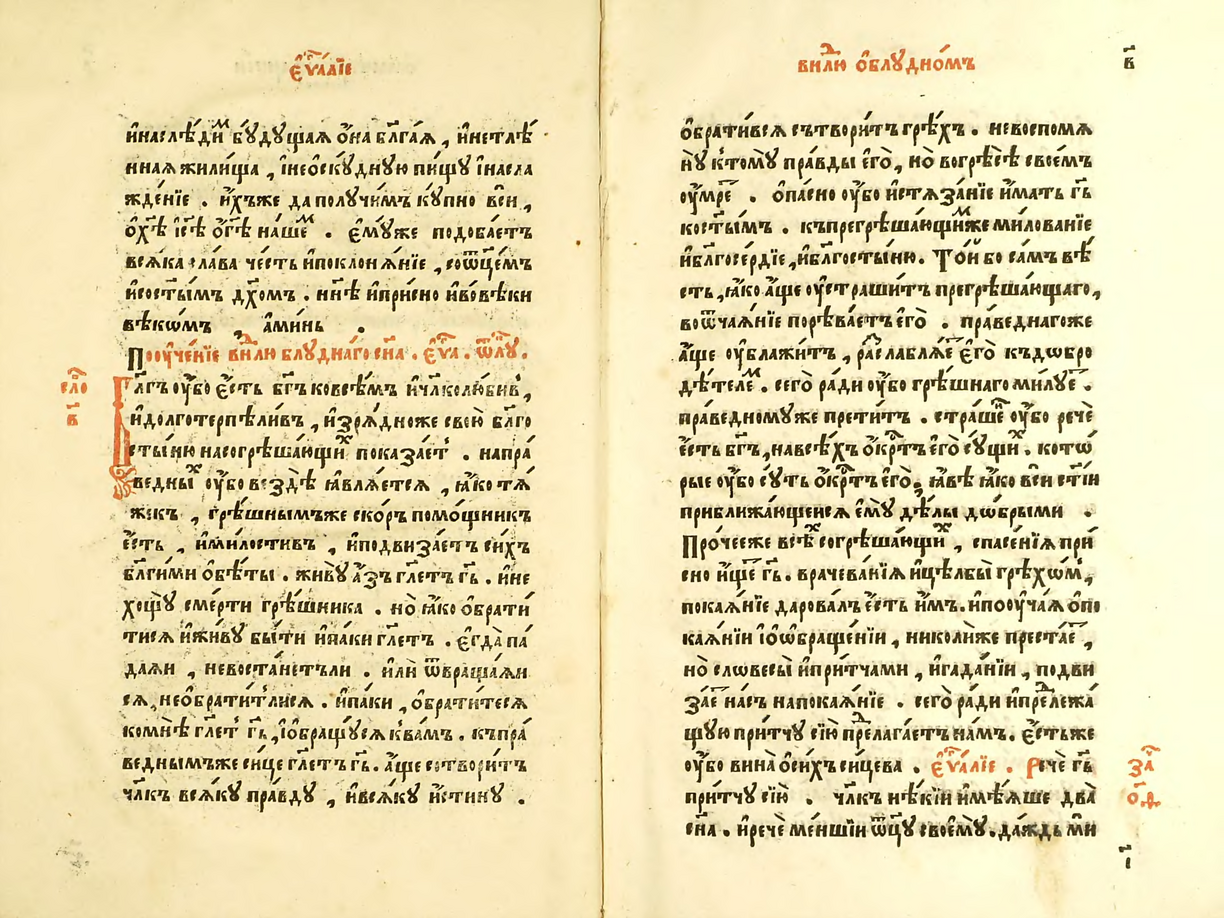 єѵⷢ҇лїе
и҆наслѣди́мⷨ бꙋ́дꙋщаѧ ѻ҆́на бл҃га́ѧ , и҆нетлѣ́
ннаѧ жили́ща , і҆неѻ҆скꙋ́днꙋю пи́щꙋ і҆насла
жде́нїе . и҆́хъже да полꙋ́чимъ кꙋ́пно всѝ ,
ѻ҆хⷭ҇ѣ і҆с҃ѣ ѻ҆́г҃ѣ на́шеⷨ . є҆мꙋ́же подоба́етъ
всѧ́ка сла́ва че́сть и҆поклонѧ́нїе , соѿц҃е́мъ
и҆сост҃ы́мъ дх҃омъ . нн҃ѣ и҆при́сно и҆вовѣ́ки
вѣкѡ́мъ , а҆ми́нь .
Пооуче́нїе внⷣлю блꙋ́днаго сн҃а . єѵⷢ҇а . ѿлꙋ .
сло́
в҃
Бл҃гъ оу҆́бо є҆́сть бг҃ъ ковсѣ́мъ и҆чл҃колю́бивⸯ ,
и҆долготерпѣли́въ , и҆зрѧ́дноже свою̀ бл҃го
сты́ню насогрѣша́ющиⷯ показа́етⸯ . напра́
ведныⷯ оу҆́бо вездѣ̀ ꙗ҆влѧ́етсѧ , ꙗ҆́ко тѧ́
жекъ , грѣ́шнымъже ско́ръ помо́щникъ
є҆́сть , и҆ми́лостивъ , и҆подвиза́етъ си́хъ
бл҃ги́ми ѻ҆бѣ́ты . живꙋ̀ а҆́зъ гл҃етъ гь҃ . и҆не
хощꙋ̀ сме́рти грѣ́шника . но̀ ꙗ҆́ко ѻ҆брати́
тисѧ и҆жи́вꙋ бы́ти и҆па́ки гл҃етъ . є҆гда̀ па́
даѧи , невоста́нетъли . и҆лѝ ѿвраща́ѧи
сѧ , неѻ҆брати́тⸯлисѧ . и҆па́ки , ѻ҆брати́тесѧ
комнѣ̀ гл҃етⸯ гь҃ , і҆ѻ҆бращꙋ́сѧ к̾ва́мъ . къпра́
веднымъже си́це гл҃етъ гь҃ . а҆́ще сотвори́тъ
чл҃къ всѧ́кꙋ пра́вдꙋ , и҆всѧ́кꙋ и҆́стинꙋ .
внⷣлю ѻ҆блꙋдно́мъ
в҃
ѻ҆брати́всѧ сътвори́тъ грѣ́хъ . невоспомѧ
нꙋ̀ к̾томꙋ̀ пра́вды є҆гѡ̀ , но̀ вогрѣ́сѣ свое́мъ
оу҆́мре . ѻ҆па́сно оу҆́бо и҆стѧза́нїе и҆́мать гь҃
кост҃ы́мъ . къпрегрѣша́ющиⷨже ми́лованїе
и҆бл҃госе́рдїе , и҆бл҃госты́ню. То́и бо са́мъ вѣ́
сть , ꙗ҆́ко а҆́ще оу҆страши́тъ прегрѣша́ющаго,
воѿча́ѧнїе порѣва́етъ є҆гѡ̀ . пра́веднагоже
а҆́ще оу҆блажи́тъ , разслаблѧ́е є҆гѡ̀ къдѡбро
дѣ́телеⷨ . сего̀ ра́ди оу҆́бо грѣ́шнаго ми́лꙋе .
пра́ведномꙋже прети́тъ . стра́ше оу҆́бо речѐ
є҆́сть бг҃ъ , навсѣ́хъ ѻ҆́крⷭ҇тъ є҆гѡ̀ сꙋ́щиⷯ . котѡ́
рые оу҆́бо сꙋ́ть ѻ҆́крⷭ҇тъ є҆гѡ̀ , ꙗ҆́вѣ ꙗ҆́ко всѝ ст҃і́и
приближа́ющеисѧ є҆мꙋ̀ дѣ́лы дѡ́брыми .
Про́чееже всѣⷯ согрѣша́ющиⷯ , спасе́нїѧ при́
сно и҆́ще гь҃ . врачева́нїѧ и҆цѣлбы̀ грѣхѡ́мⸯ ,
покаѧ́нїе дарова́лъ є҆́сть и҆̀мъ . и҆пооуча́ѧ ѻ҆по
каѧ́нїи і҆ѻ҆ѡбраще́нїи , николи́же преста́е ,
но̀ словесы̀ и҆при́тчами , и҆гада́нїи , подви
за́е на́съ напокаѧ́нїе . сего̀ ра́ди и҆преⷣлежа́
щꙋю при́тчꙋ сїю̀ преⷣлага́етъ на́мъ . є҆́стьже
оу҆́бо вина̀ ѻ҆си́хъ си́цева . є҆ѵⷢ҇лїе . Речѐ гь҃
при́тчꙋ сїю̀ . чл҃къ нѣ́кїи и҆мѣ́ѧше два̀
сн҃а . и҆речѐ ме́ншїи ѿц҃ꙋ своемꙋ̀ . да́ждь мѝ
заⷱ҇
ѻ҃ѳ
і҃